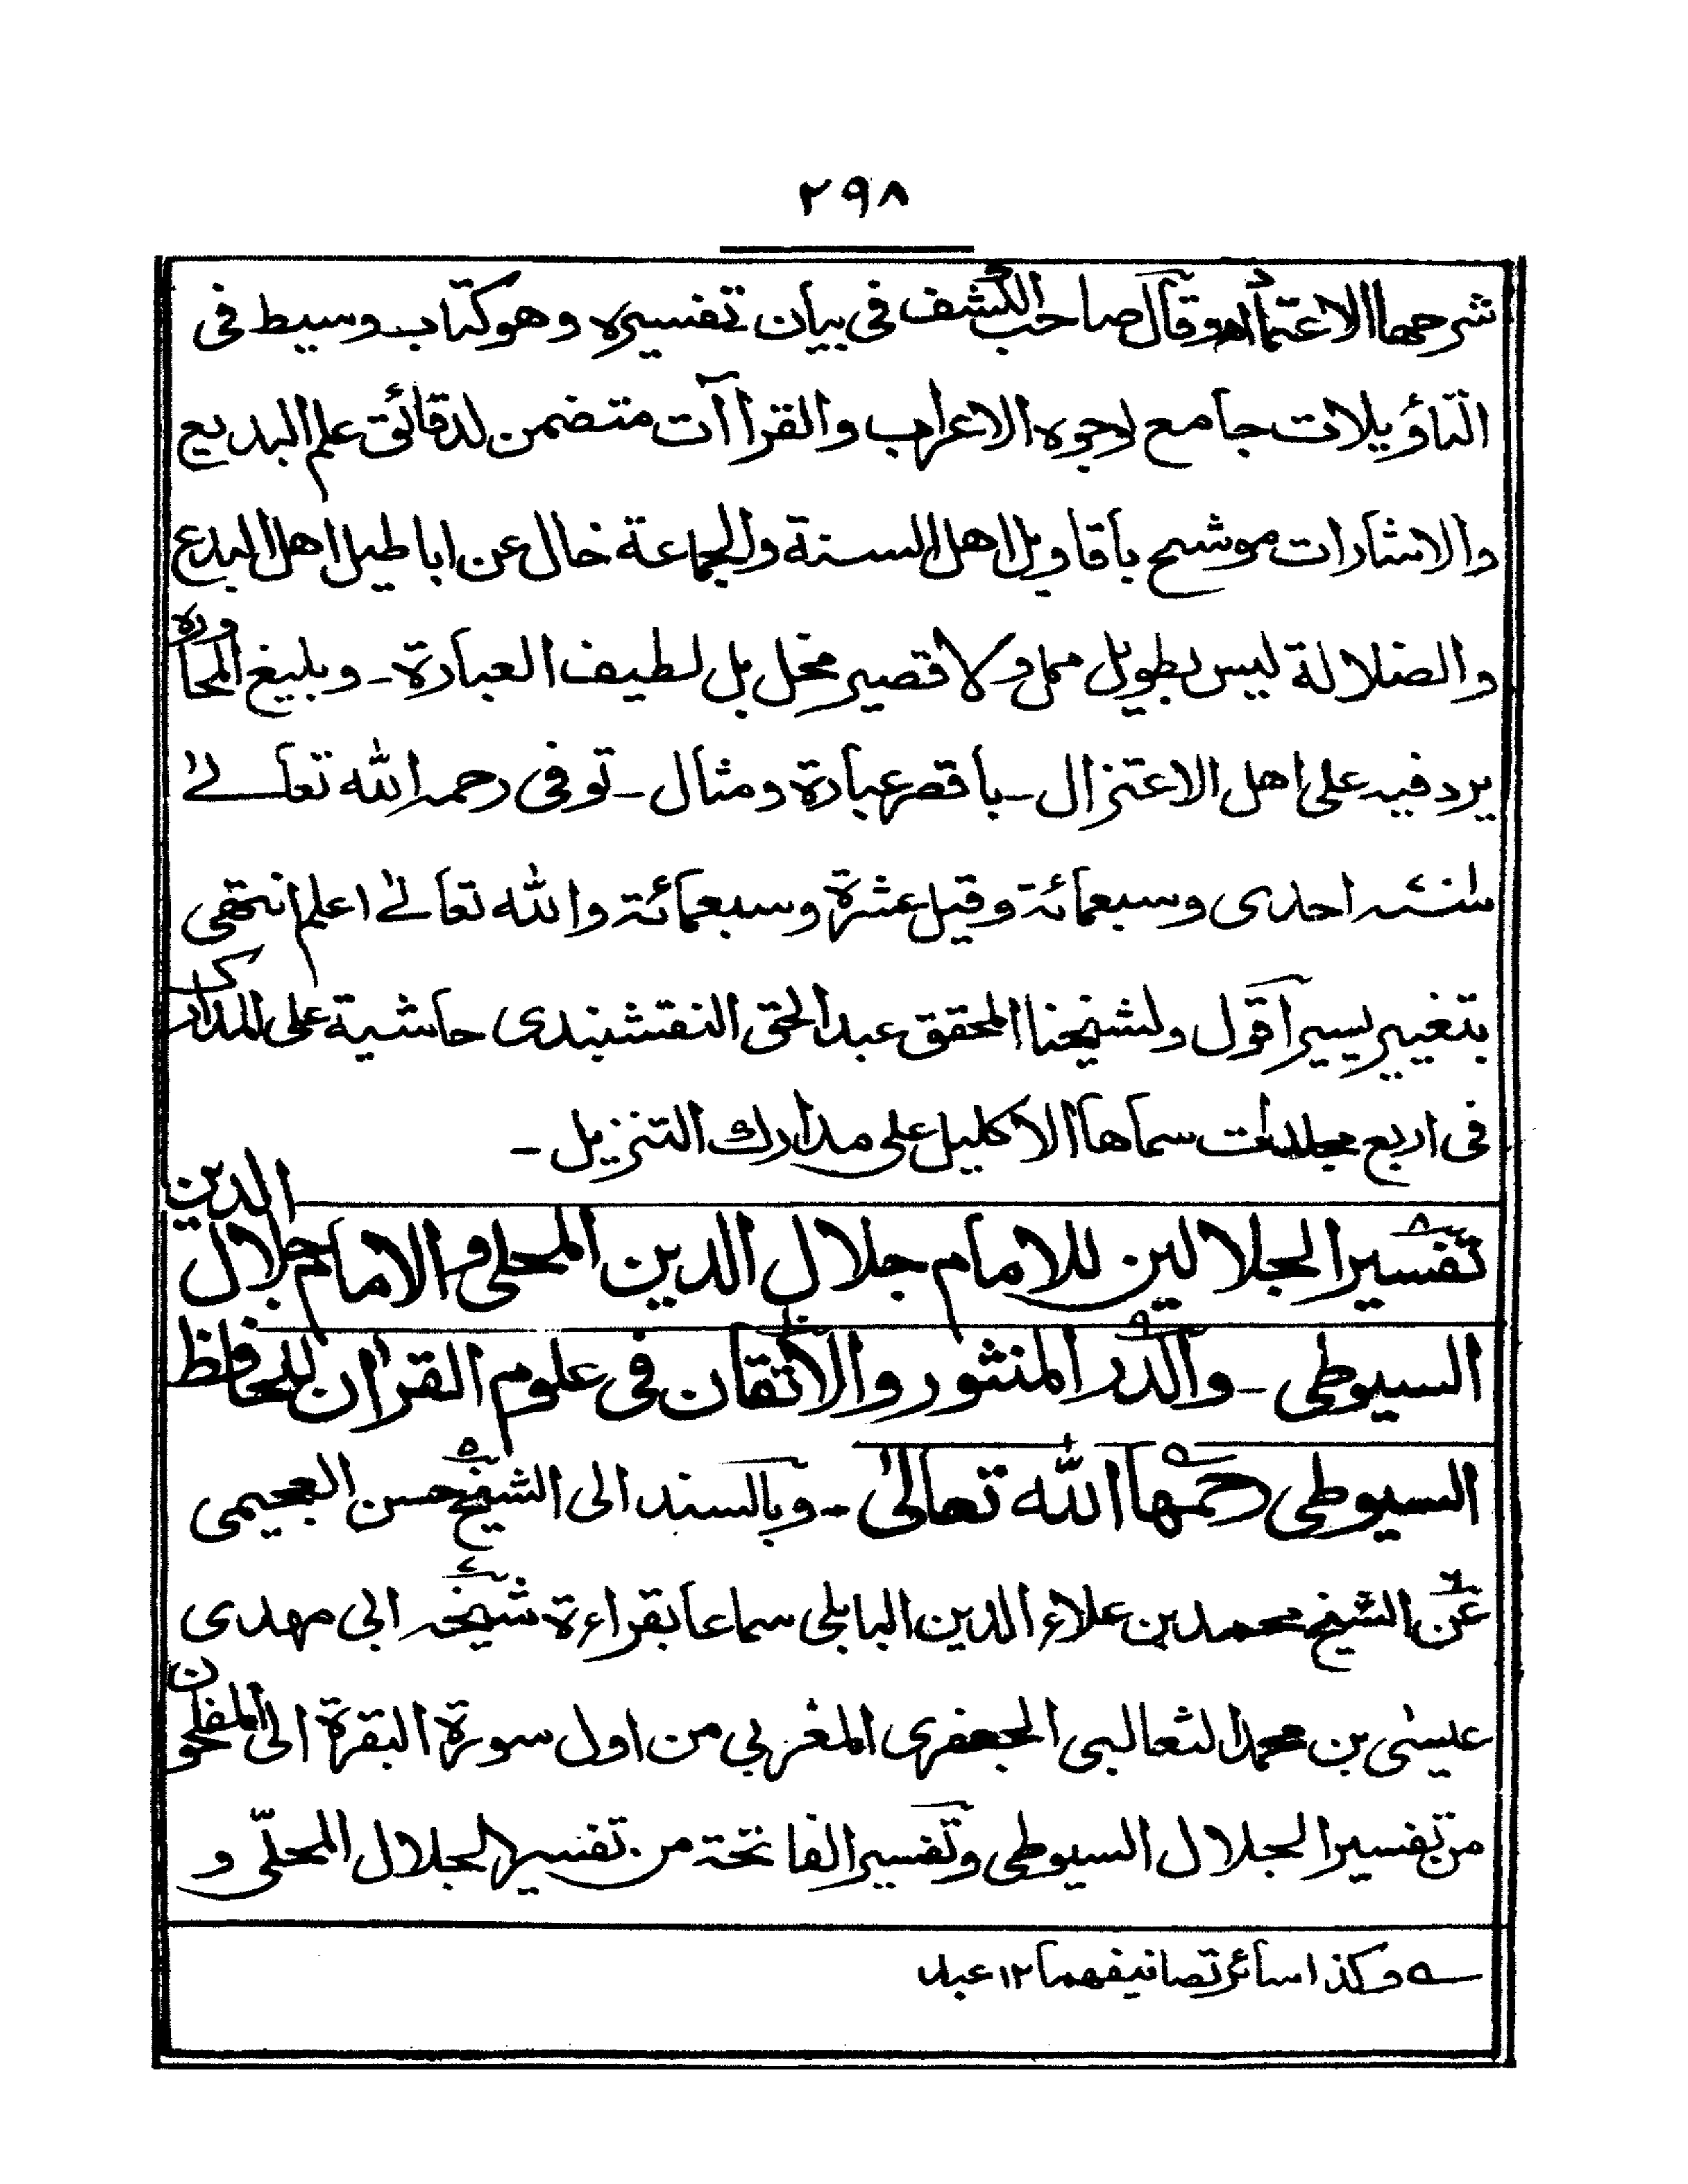 ٢٩٨
شرحها الاعتماد اهـ وقال صاحب الكشف فى بيان تفسيره وهو كتاب وسيط فى
التأويلات جامع لوجوه الاعراب والقراآت متضمن لدقائق علم البديع
والاشارات موشح باقاويل اهل السنة والجماعة خال عن اباطيل اهل البدع
والضلالة ليس بطويل ممل ولا قصير مخل بل لطيف العبارة ـ وبليغ المحاوره
يرد فيه على اهل الاعتزال ـ باقصر عبارة ومثال ـ توفى رحمه الله تعالىٰ
احدى وسبعمائة وقيل عشرة وسبعمائة والله تعالىٰ اعلم انتهى
بتغيير يسير اقول ولشيخنا المحقق عبد الحق النقشبندى حاشية على المدارك
فى اربع مجلدات سماها الاكليل على مدارك التنزيل ـ
تفسير الجلالين للامام جلال الدين المحلى والامام جلال الدين
السيوطى ـ والدر المنثور والاتقان فى علوم القرآن للحافظ
السيوطى رحمهما الله تعالىٰ ـ وبالسند الى الشيخ حسن العجيمى
عن الشيخ محمد بن علاء الدين البابلى سماعا بقراءة شيخه ابى مهدى
عيسىٰ بن محمد الثعالبى الجعفرى المغربي من اول سورة البقرة الى المفلحون
من تفسير الجلال السيوطى وتفسير الفاتحة من تفسير الجلال المحلّى و
ـه وكذا سائر تصانيفهما ١٢ عبد